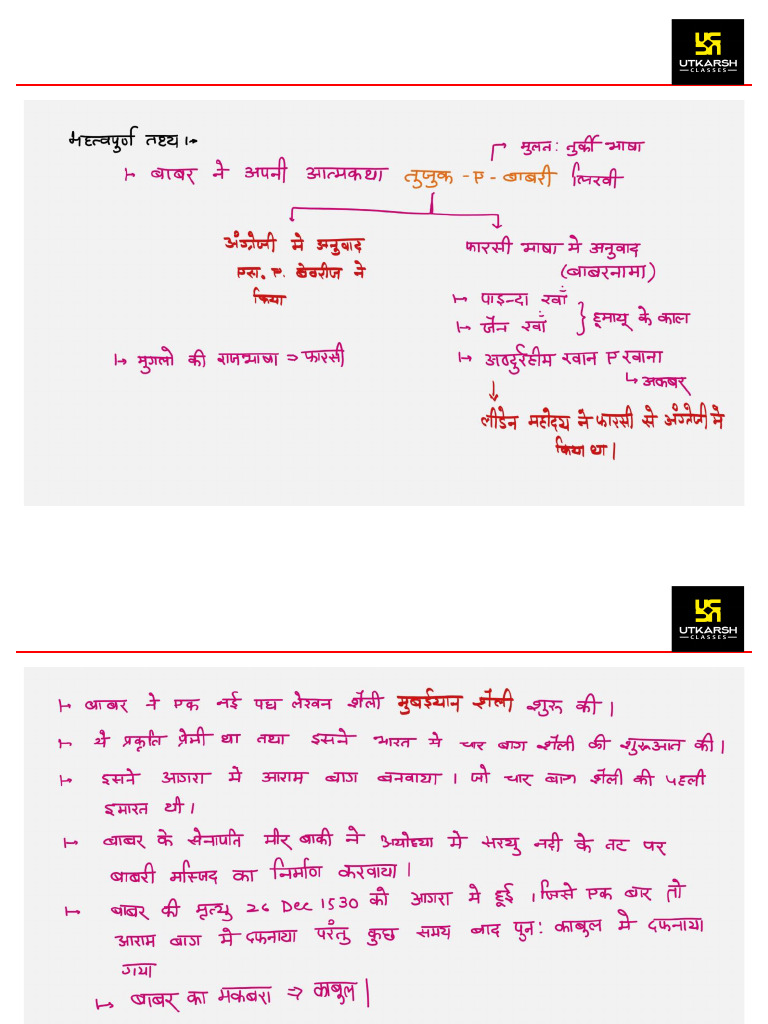 UTKARSH
CLASSES
महत्वपूर्ण तथ्य :-
→ मुलत: तुर्की भाषा
↦ बाबर ने अपनी आत्मकथा तुजुक -ए- बाबरी लिखी
अंग्रेजी मे अनुवाद
एस. ए. बेवरीज ने
किया
फारसी भाषा मे अनुवाद
(बाबरनामा)
↦ पाइन्दा खाँ
↦ जैन खाँ
} हूमायू के काल
↦ मुगलो की राजभाषा ⇒ फारसी
↦ अब्दुर्रहीम खान ए खाना
↳ अकबर
↓
लीडेन महोदय ने फारसी से अंग्रेजी मे
किया था |
UTKARSH
CLASSES
↦ बाबर ने एक नई पद्य लेखन शैली मुबईयान शैली शुरू की |
↦ ये प्रकृति प्रेमी था तथा इसने भारत मे चार बाग शैली की शुरूआत की |
↦ इसने आगरा मे आराम बाग बनवाया | जो चार बाग शैली की पहली
इमारत थी |
↦ बाबर के सेनापति मीर बाकी ने अयोध्या मे सरयु नदी के तट पर
बाबरी मस्जिद का निर्माण करवाया |
↦ बाबर की मृत्यु 26 Dec 1530 को आगरा मे हुई | जिसे एक बार तो
आराम बाग मे दफनाया परंतु कुछ समय बाद पुन: काबुल मे दफनाया
गया
↦ बाबर का मकबरा ⇒ काबुल |